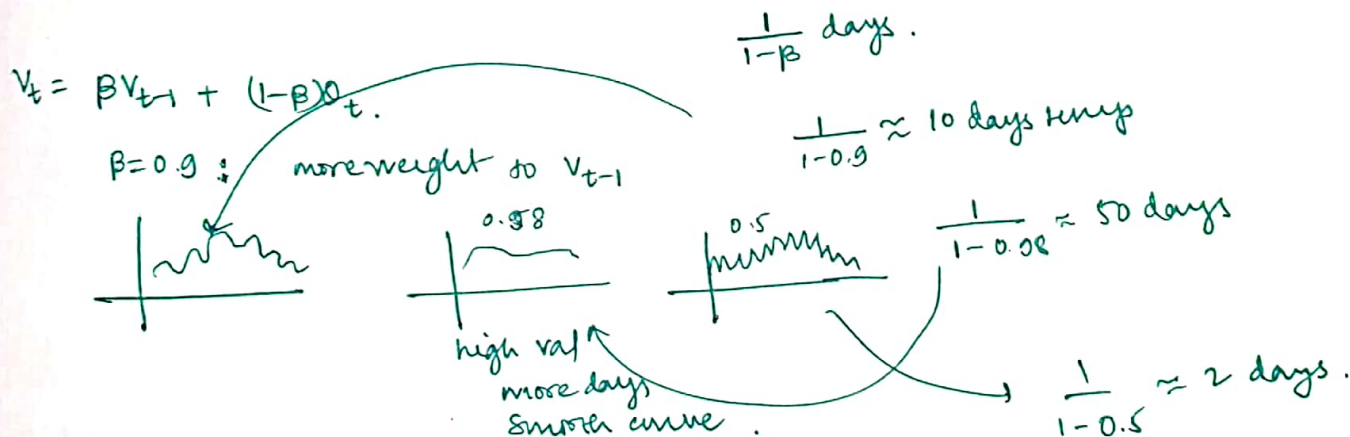 1/(1-β) days.
V_t = βV_{t-1} + (1-β)θ_t.
1/(1-0.9) ≈ 10 days temp
β=0.9 : more weight to V_{t-1}
0.98
0.5
1/(1-0.98) ≈ 50 days
high val
more days
smooth curve.
1/(1-0.5) ≈ 2 days.